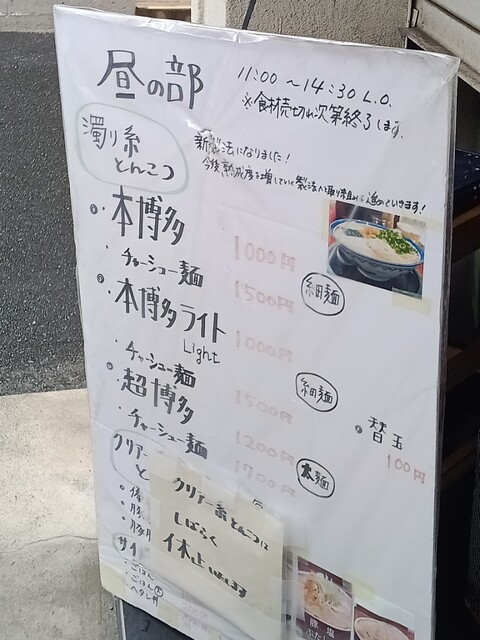 昼の部
11:00 〜 14:30 L.O.
※食材売切れ次第終了します。
濁り系
とんこつ
新製法になりました！
今後熟成度を増していく製法へと取り
進めていきます！
・本博多 1000円
・チャーシュー麺 1500円
細麺
・本博多ライト 1000円
Light
・チャーシュー麺 1500円
細麺
・超博多 1200円
・チャーシュー麺 1700円
太麺
・替玉
100円
クリアー
と
クリアー系とんこつは
しばらく
休止します
・豚
・豚
サイ
・ごはん
・ごはん大
・ヘタレ丼
豚塩